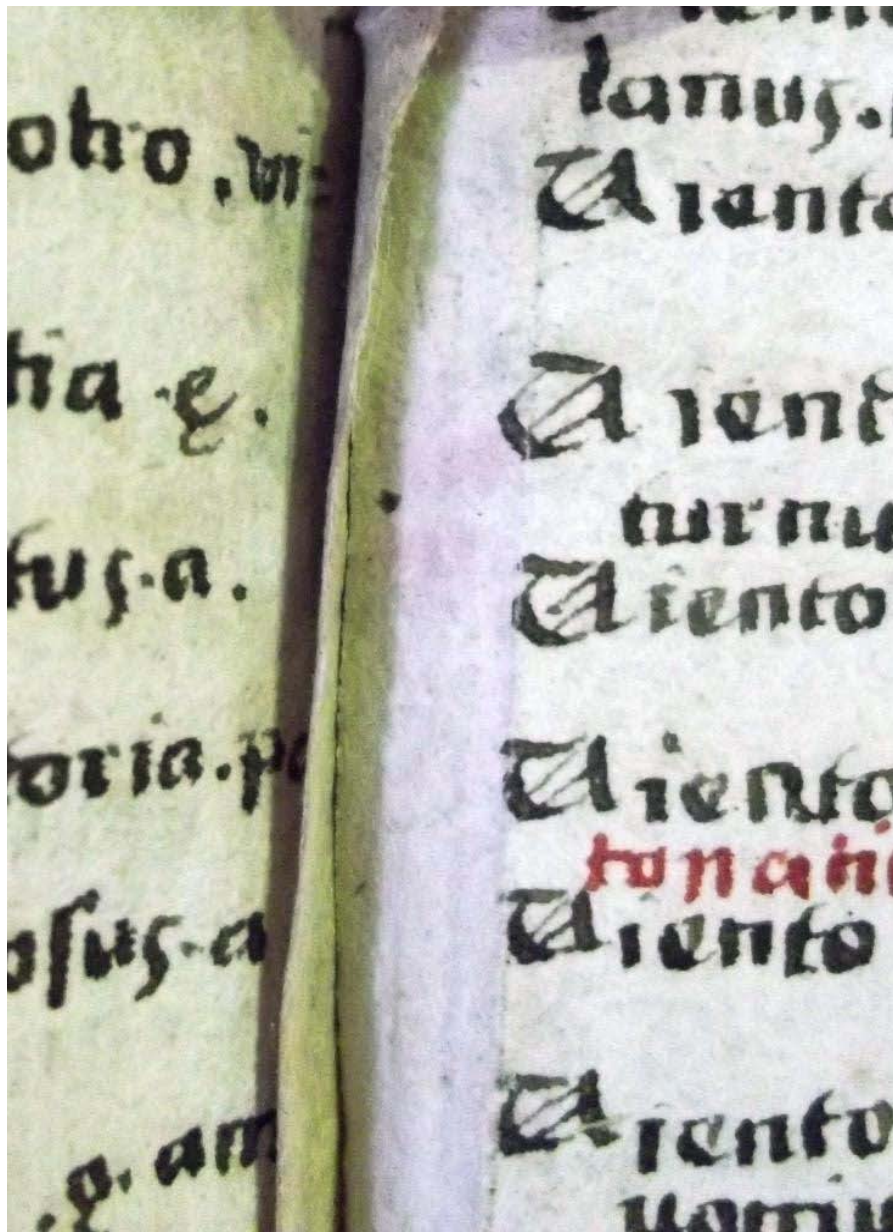 otro .vi
tia .ę.
tus.a.
toria.pa
osus.a
.g. am
lanus.
Uiento
Uient
turnu
Uiento
Uiento
tonati
Uiento
Uiento